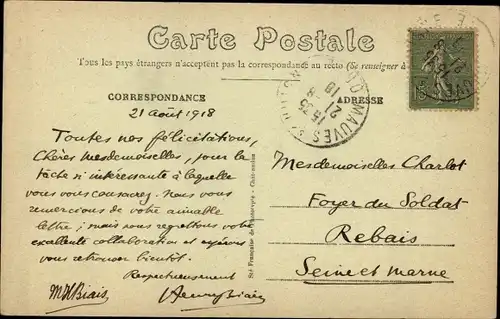 Carte Postale
Tous les pays étrangers n'acceptent pas la correspondance au recto (Se renseigner à
CORRESPONDANCE
ADRESSE
21 août 1918
Toutes nos félicitations,
Chères Mesdemoiselles, pour la
tâche si intéressante à laquelle
vous vous consacrez. Nous vous
remercions de votre aimable
lettre ; mais nous regrettons votre
excellente collaboration et espérons
vous retrouver bientôt.
Respectueusement
M H Biais
Henry Biais
Mesdemoiselles Charlot
Foyer du Soldat
Rebais
Seine et Marne
MAUVES
15 35
21 -8
18
15